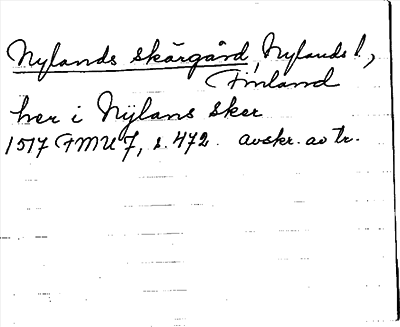 Nylands skärgård, Nylands l.,
Finland
her i Nÿlans sker
1517 FMU 7, s. 472. avskr. av tr.